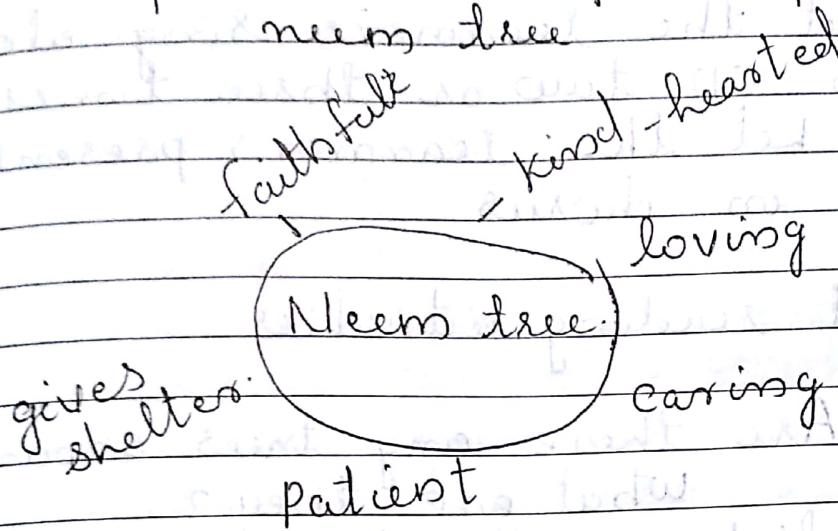 neem tree
faithful
kind-hearted
loving
Neem tree.
gives
shelter.
caring
patient